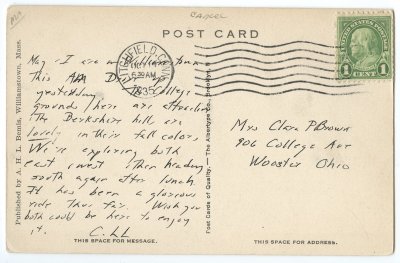 CANCEL
POST CARD
LITCHFIELD, CONN.
OCT 14
6:30 AM
1935
1 CENT 1
May + I are in
this
yesterday. College
grounds here are attractive
The Berkshire hills are
lovely in their fall colors.
We're exploring both
east + west then heading
south again after lunch.
It has been a glorious
ride thus far. Wish you
both could be here to enjoy
it. C.LL
Mrs Clara P Brown
906 College Ave
Wooster Ohio
THIS SPACE FOR MESSAGE.
THIS SPACE FOR ADDRESS.
Published by A. H. L. Bemis, Williamstown, Mass.
Post Cards of Quality. — The Albertype Co., Brooklyn, N.Y.